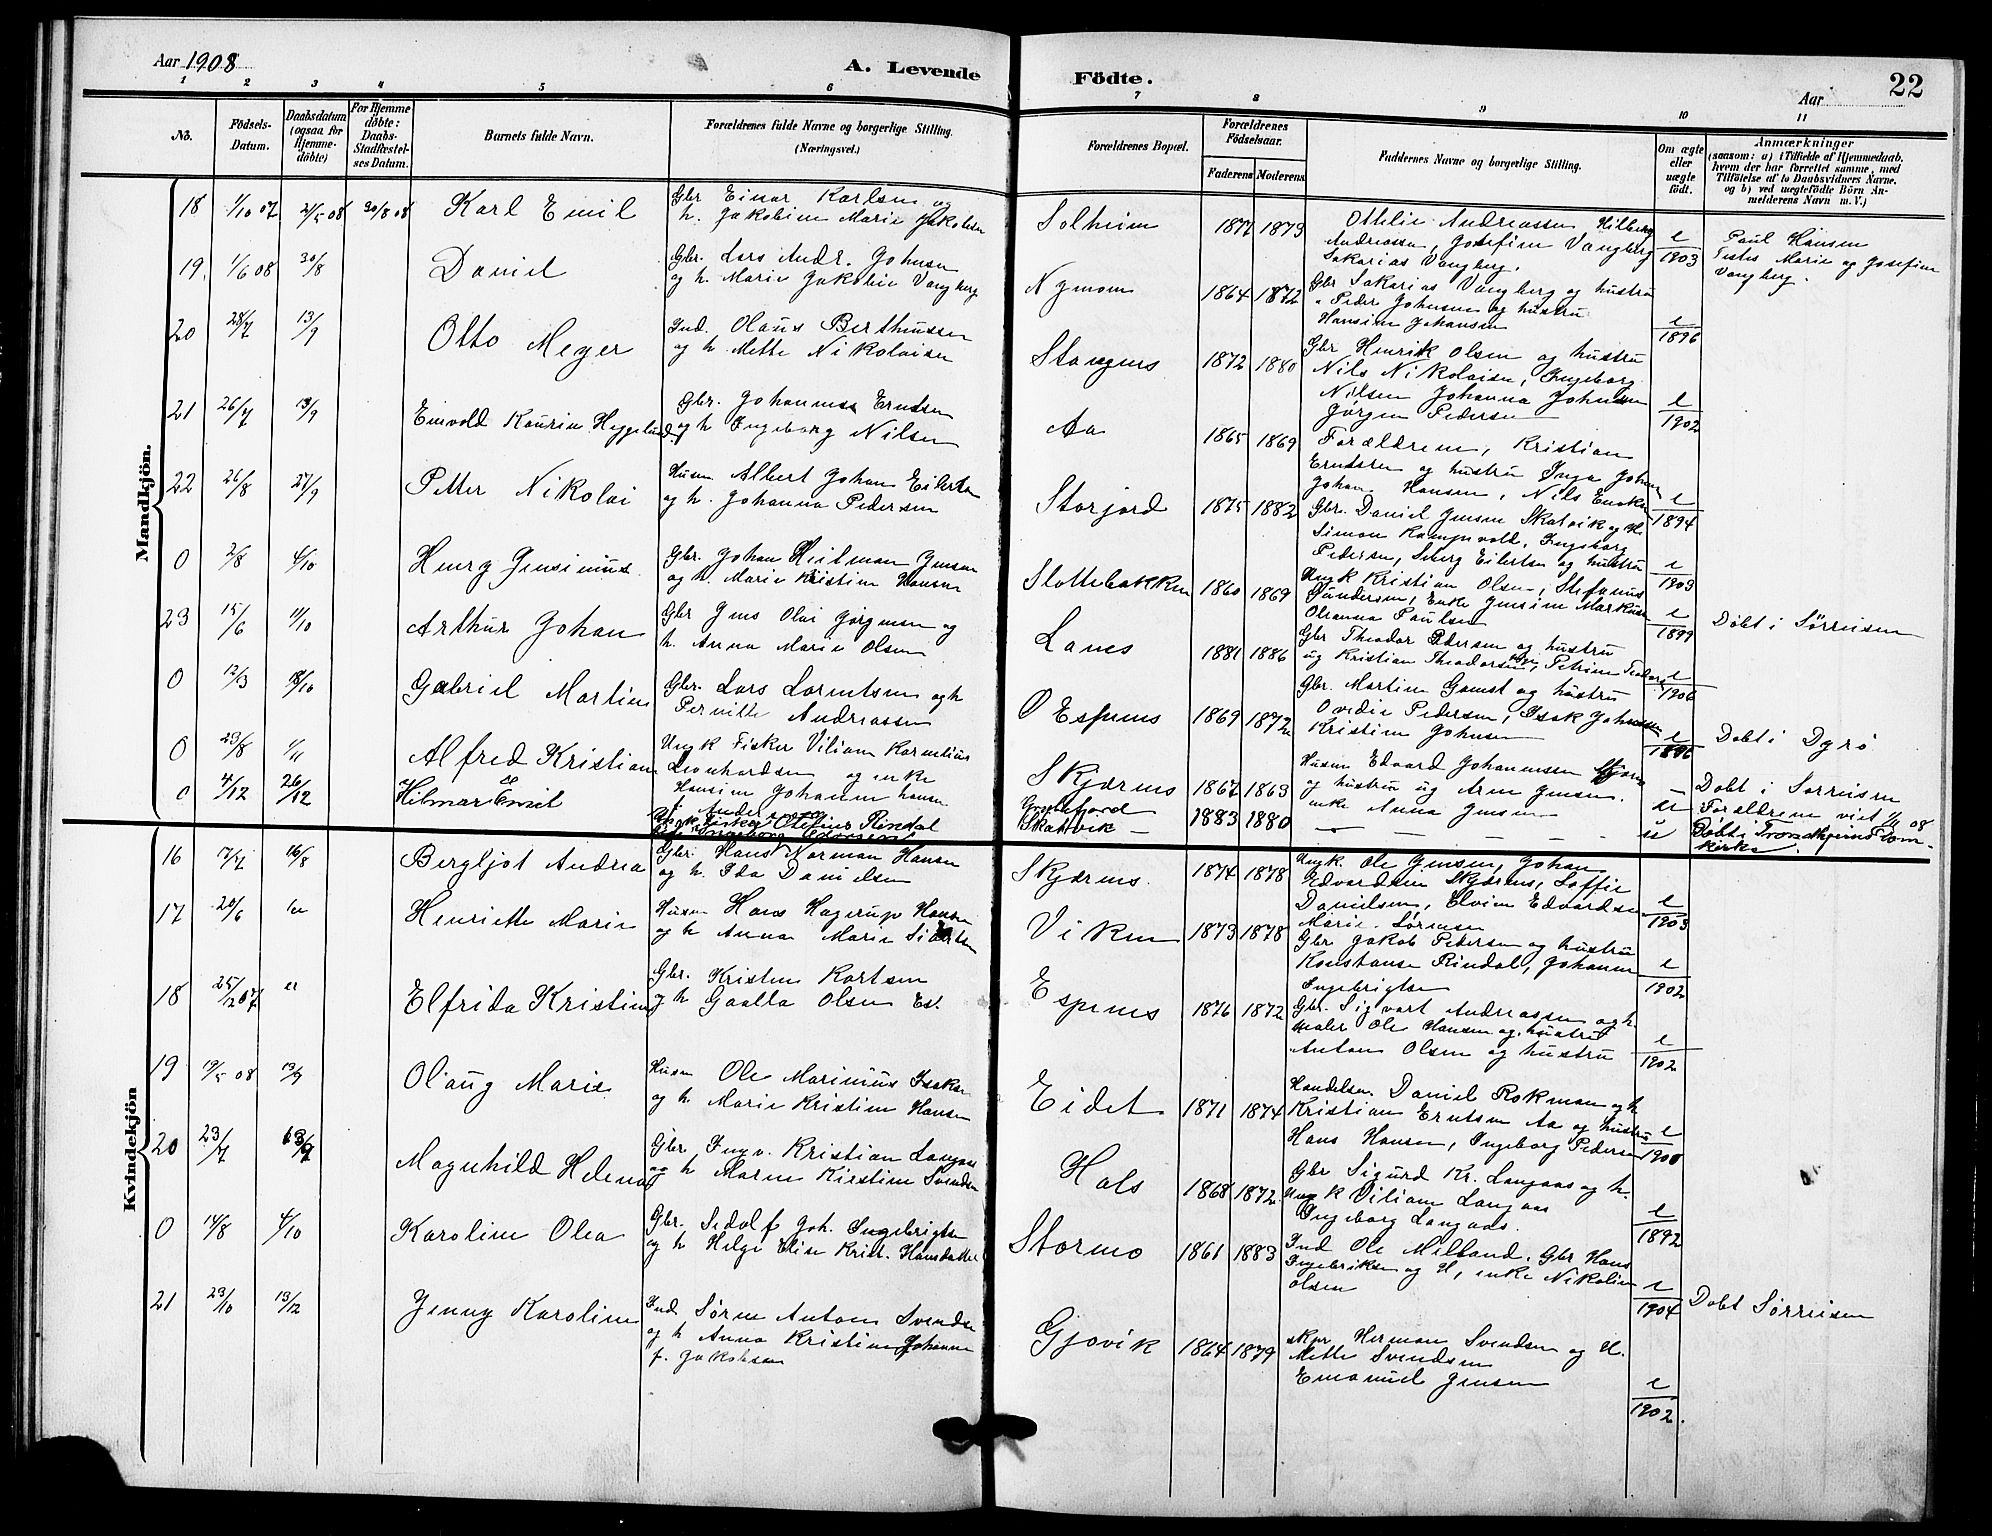 Aar 1908
A. Levende
Födte.
Aar
22
1 2 3 4 5 6 7 8 9 10 11
No.
Födsels-
Datum.
Daabsdatum
(ogsaa for
Hjemme-
döbte)
For Hjemme
döbte:
Daabs-
Stadfæstel-
ses Datum.
Barnets fulde Navn.
Forældrenes fulde Navne og borgerlige Stilling.
(Næringsvei.)
Forældrenes Bopæl.
Forældrenes
Födselsaar.
Faderens
Moderens
Faddernes Navne og borgerlige Stilling.
Om ægte
eller
uægte
födt.
Anmærkninger
(saasom: a) i Tilfælde af Hjemmedaab,
hvem der har forrettet samme, med
Tilföielse af to Daabsvidners Navne,
og b) ved uegtefödte Börn An-
melderens Navn m. V.)
Mandkjön.
18 1/10 07 2/5 08 30/8 08 Karl Emil
Gbr Einar Karlsen og
h. Jakobine Marie Jakobsen
Solheim 1877 1879
Ottilie Andreassen Hilberg
Andreassen, Josefine Vangberg
Sakarias Vangberg.
e
1903
Paul Hansen
Testes Marie og Josefine
Vangberg.
19. 1/6 08 30/8 Daniel
Gbr. Lars Andr. Johnsen
og h. Marie Jakobie Vangberg
Nymoen 1864 1872
Gbr Sakarias Vangberg og hustru
" Peder Johnsen og hustru
Hansine Johansen
e
1896
20 28/7 13/9 Otto Meyer
Ind. Olaus Berthinssen
og h. Mette Nikolaisen
Stangnes 1872 1880
Gbr Henrik Olsen og hustru
Nils Nikolaisen, Ingeborg
Nilsen Johanna Johnsen
Jørgen Pedersen
e
1902
21 26/7 13/9 Einvold Kaurin Heggelund
Gbr. Johannes Erntsen
og h Ingeborg Nilsen
Aa 1865 1869
Forældrene, Kristian
Erntsen og hustru Inga Johan
Johan Hansen, Nils
e
1894
22 26/8 27/9 Petter Nikolai
Husm Albert Johan Eilertsen
og h. Johanna Pedersen
Storjord 1875 1882
Gbr. Daniel Jensen Skatvik og H.
Simon Kampevold, Ingeborg
Pedersen, Sberg Eilertsen og hustru
e
1903
0 2/8 4/10 Henry Jensinius
Gbr. Johan Heitman Jensen
og h. Marie Kristine Hansen
Slottebakken 1860 1869
Ungk Kristian Olsen, Stefanus
Gundersen, Enke Jensine Markussen
Oleanna Paulsen
e
1899
23 15/6 11/10 Arthur Johan
Gbr Jens Olai Jørgensen og
h. Anna Marie Olsen
Lanes 1881 1886
Gbr Theodor Pedersen og hustru
ug Kristian Theodorsen, Petrine
e
1906
Døbt i Sørreisen
0 12/3 18/10 Gabriel Martin
Gbr. Lars Lorentsen og h
Pernille Andreassen
O Espenes 1869 1872
Gbr. Martin Gamst og hustru
Ovedie Pedersen, Isak Johnsen
Kristine Johnsen
e
1896
Døbt i Dyrø
0 23/8 1/11 Alfred Kristian
Ungk Fisker Viliam Kornelius
Leonhardsen og enke
Hansine Johanne Hansen
f. Andersen
Skjærnes 1867 1863
Husm Edvard Johannessen
og hustru ug Arne Jensen.
enke Anna Jensen
Døbt i Sørreisen
Forældrene viet 1/11 08
0 4/12 26/12 Hilmar Emil
Ungk. Fisker Olefinus Rindal
Skatvik 1883 1880
u
Døbt i Trondhjems Dom-
kirke.
Kvindekjön
16 17/7 16/8 Bergljot Andrea
Gbr. Hans Norman Hansen
og h. Ida Danielsen
Skjærnes. 1874 1878
Ungk. Ole Jensen, Johan
Edvardsen Skjærnes, Soffie
Danielsen, Elvine Edvardsen
Marie Sørensen
e
1903
17 20/6 Henriette Marie
Husm Hans Hagerup Hansen
og h Anna Marie
Viken 1873 1878
Gbr Jakob Pedersen og hustru
Konstanse Rindal, Johanne
Ingebrigtsen
e
1902
18 25/12 07 Elfrida Kristine
Gbr. Kristen Kartsen
og h Olsen Es.
Espenes 1876 1872
Gbr. Sigvart Andreassen og h.
maler Ole Hansen og hustru
Anton Olsen og hustru
e
1902
19 19/5 08 13/9 Olaug Marie
Husm Ole Marinius Isaksen
og h. Marie Kristine Hansen
Eidet 1871 1874
Handelsm. Daniel Rokman og h
Kristian Erntsen Aa og hustru
Hans Hansen, Ingeborg Pedersen
e
1900
20 23/7 13/9 Magnhild Helena
Gbr. Ingv. Kristian Langaas
og h Maren Kirstine Svendsen
Hals 1868 1872
Gbr Sigurd Kr. Langaas og h.
Ungk Viliam Langaas
Ingeborg Langaas.
e
1892
0 14/8 4/10 Karoline Olea
Gbr. Sedolf Joh. Ingebrigtsen
og h Helge Elise Krist. Hansdatter
Stormo 1861 1883
Ind Ole Melland, Gbr Hans
Ingebriksen og H, enke Nikoline
Olsen
e
1904
Døbt Sørreisen
21 23/10 13/12 Jenny Karoline
Ind Søren Anton Svendsen
og h Anna Kristine Johanne
f. Jakobsen
Gjovik 1864 1879
skpr Herman Svendsen og H.
Mette Svendsen
Emanuel Jensen
e
1902.